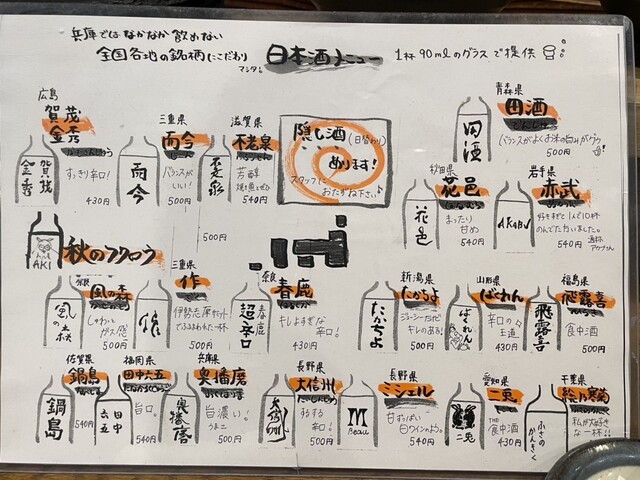 兵庫ではなかなか飲めない
全国各地の銘柄にこだわり
マシタ。
日本酒メニュー
1杯90mlのグラスで提供
広島
賀茂
金秀
賀茂
金秀
すっきり辛口!
430円
三重県
而今
而今
バランスが
いい!
500円
滋賀県
不老泉
芳醇
540円
隠し酒
(日替わり)
あります!
スタッフに
おたずね下さい♪
青森県
田酒
でんしゅ
田酒
500円
秋田県
花邑
はなむら
花邑
まったり
甘め
540円
岩手県
赤武
あかぶ
AKABU
好きすぎて1人で10杯
のんでた方いました。
540円
AKI
秋のフクロウ
500円
奈良
風の森
風の森
しゅわっと
ガス感
500円
三重県
作
作
500円
奈良
春鹿
春鹿
超辛口
キレよすぎな
辛口!
430円
新潟県
たかちよ
たかちよ
ジューシーだけど
キレのある!
500円
山形県
ばくれん
ばくれん
辛口の
王道
430円
福島県
飛露喜
飛露喜
食中酒
500円
佐賀県
鍋島
なべしま
鍋島
540円
福岡県
田中六五
田中
六五
旨口。
540円
兵庫県
奥播磨
奥播磨
旨濃い。
うまこ
500円
長野県
大信州
大信州
辛口!
500円
長野県
ミシェル
M
Beau
甘ずっぱい
白ワインのよう。
540円
愛知県
二兎
二兎
THE
食中酒
430円
千葉県
ふさの
かんぎく
私が大好き
な一杯!!
540円